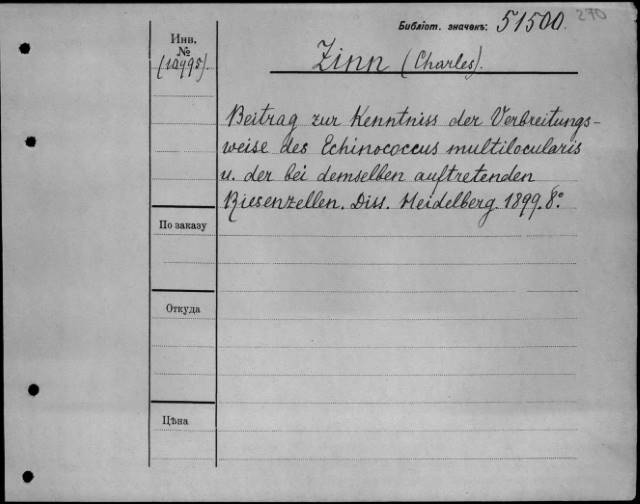 Библіот. значекъ: 51500. 270
Инв.
№
(10495).
Zinn (Charles).
Beitrag zur Kenntniss der Verbreitungs-
weise des Echinococcus multilocularis
u. der bei demselben auftretenden
Riesenzellen. Diss. Heidelberg. 1899. 8°.
По заказу
Откуда
Цѣна